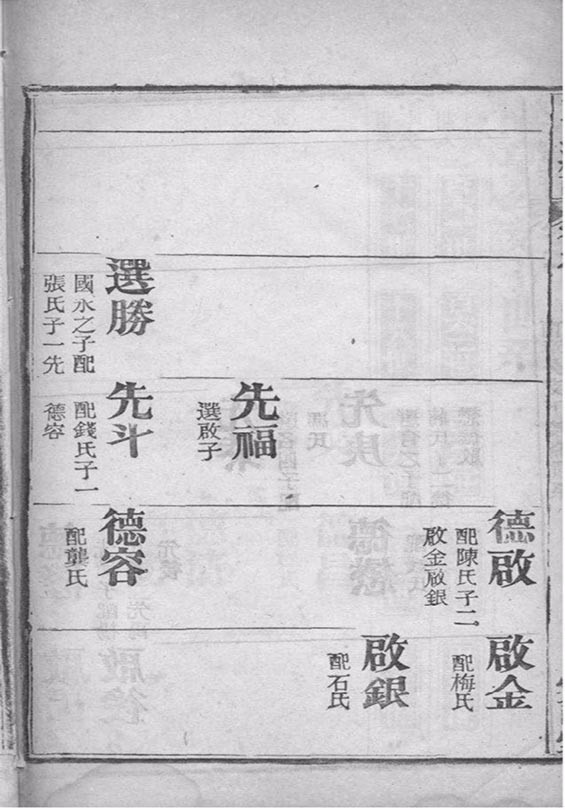 德啟
配陳氏子二
啟金啟銀
啟金
配梅氏
啟銀
配石氏
先福
選啟子
選勝
國永之子配
張氏子一先
先斗
配錢氏子一
德容
德容
配龔氏